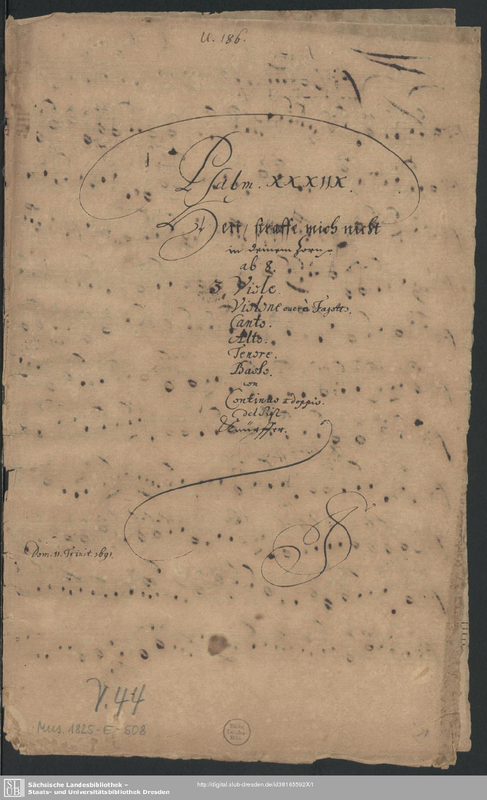 U. 186.
Psalm. XXXIIX.
Herr, straffe mich nicht
in deinem Zorn
ab 8.
3 Viole.
Violone overo Fagotto.
Canto.
Alto.
Tenore.
Basso.
con
Continuo
del Sigr
Dom. 11. Trinit. 1691
V. 44
Mus. 1825-E-508
SLUB
Sächsische Landesbibliothek –
Staats- und Universitätsbibliothek Dresden
http://digital.slub-dresden.de/id39145592X/1